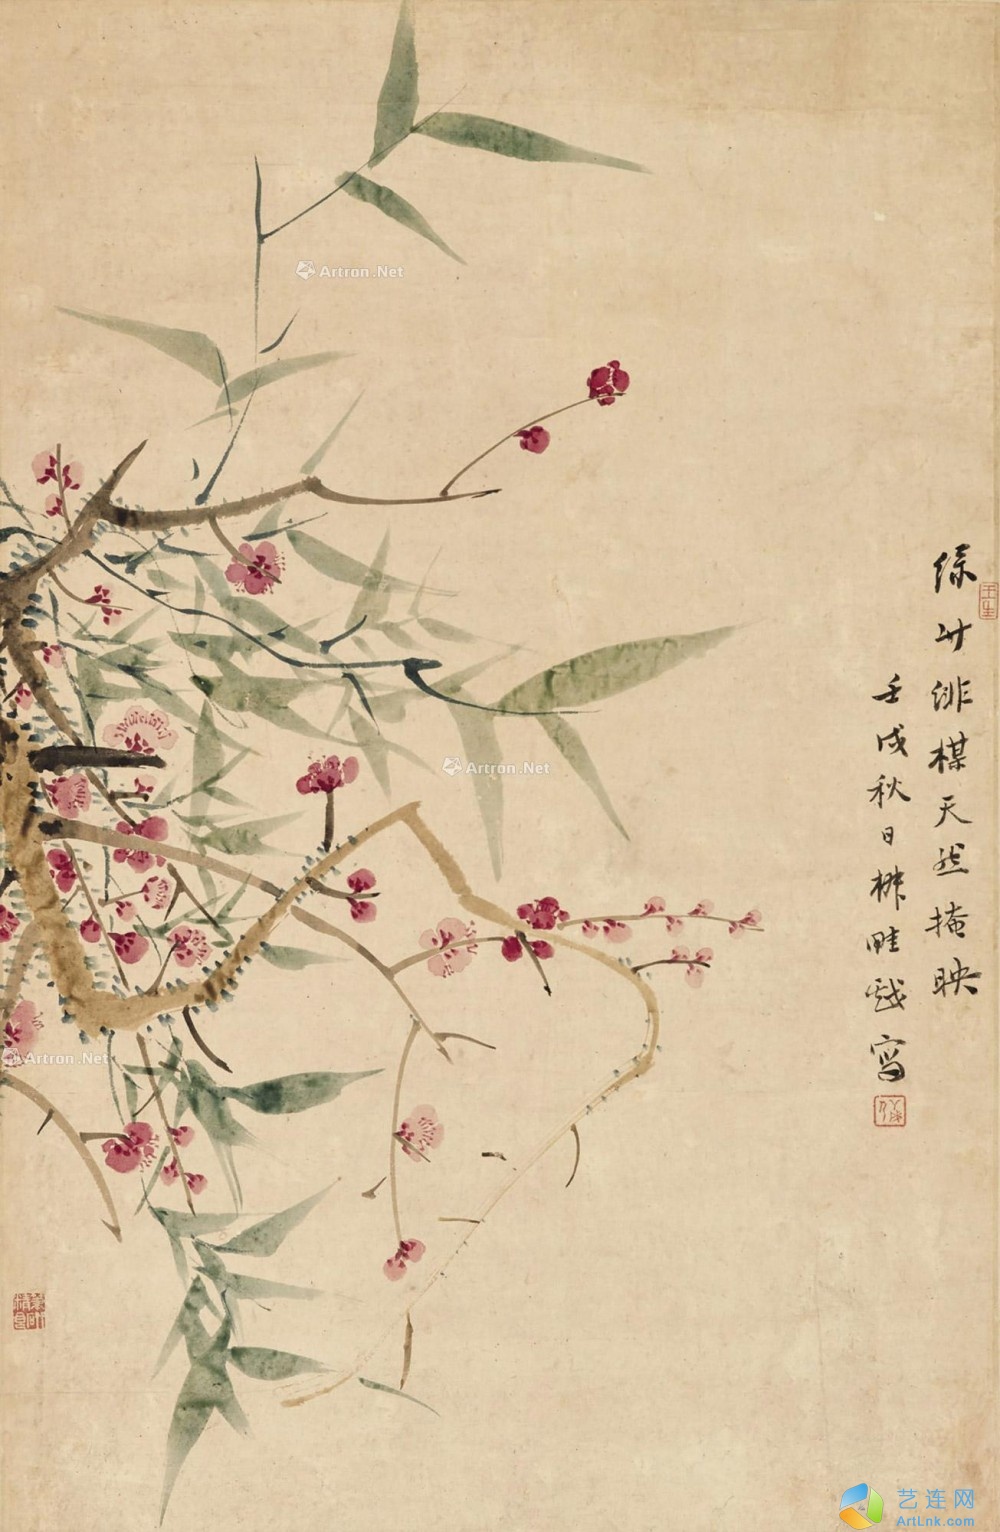 绿竹绯楳天然掩映
壬戌秋日桝畦戏寫
壬生
Artron.Net
Artron.Net
Artron.Net
艺连网
ArtLnk.com